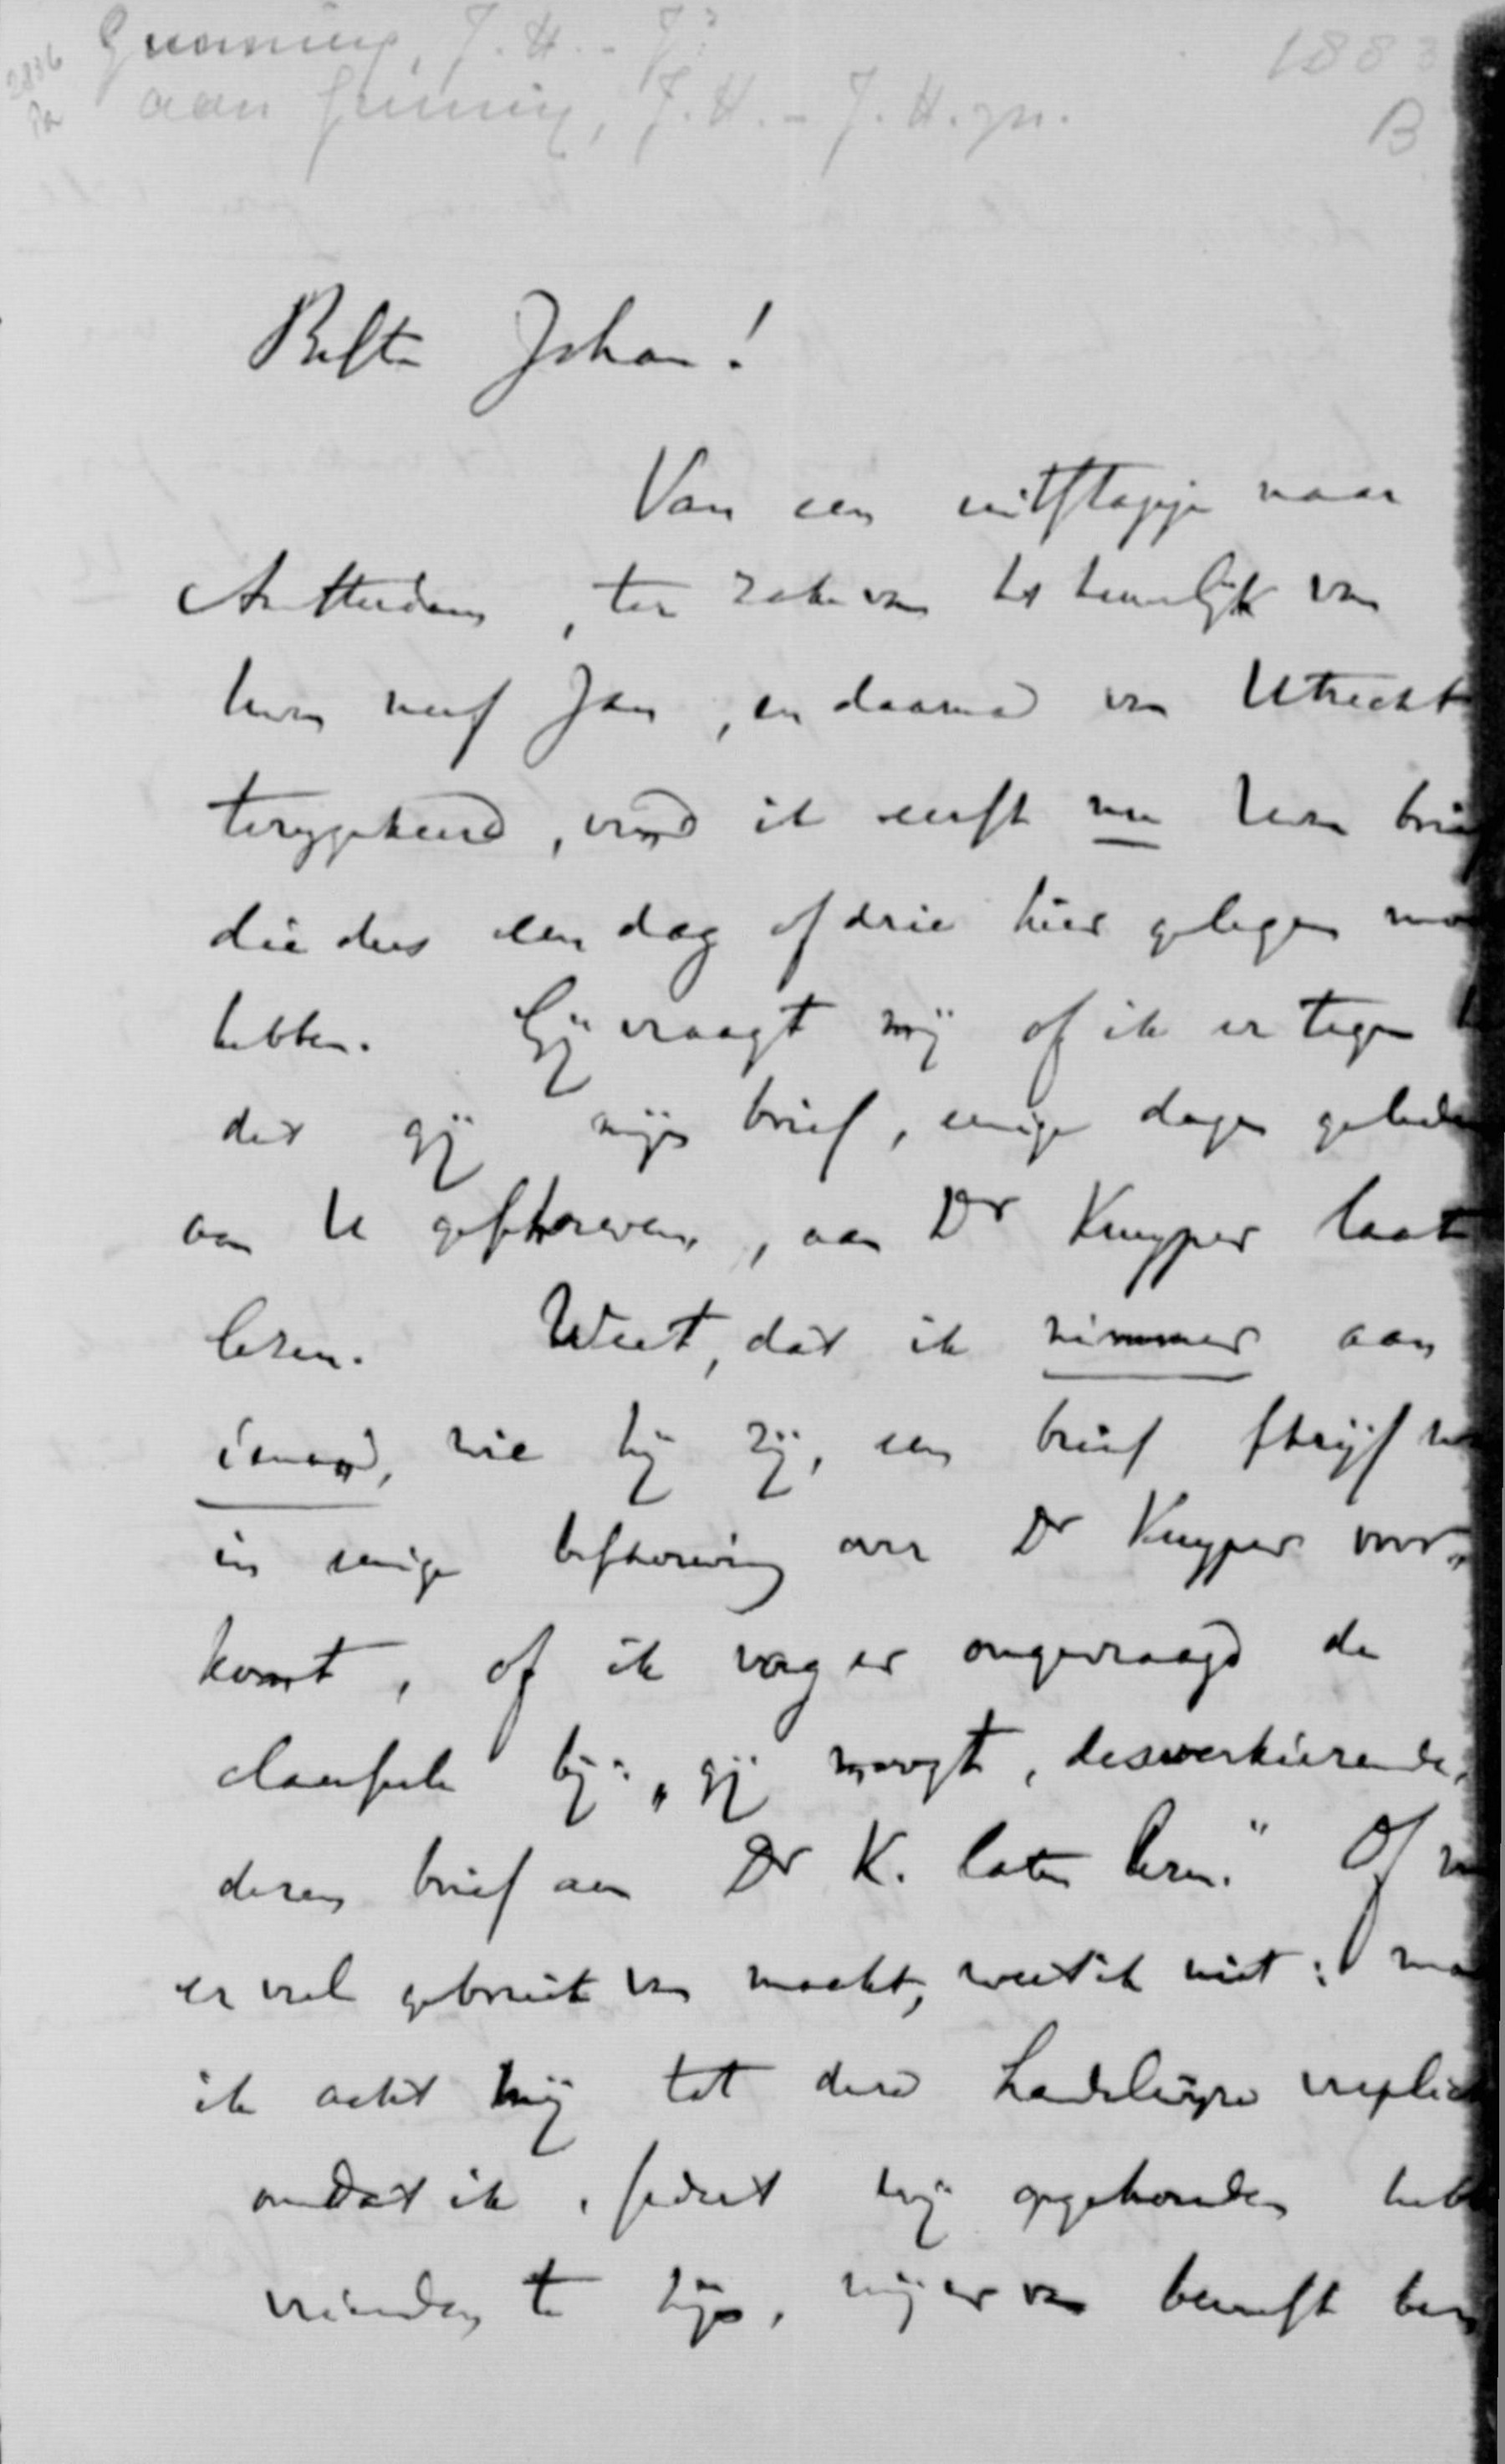 Gunning, J. H. - Jr
1883
2836
Pa
aan Gunning, J. H. - J. H. zn.
B
Beste Johan!
Van een uitstapje naar
Amsterdam, ter zake van het huwelijk van
neef Jan, en daarna van Utrecht
teruggekeerd, vind ik eerst nu uwen brief
die dus een dag of drie hier gelegen moet
hebben. Gij vraagt mij of ik er tegen
dat gij mijn brief, eenige dagen geleden
aan U geschreven, aan Dr Kuyper laat
lezen. Weet, dat ik nimmer aan
iemand, wie hij zij, een brief schrijf
in eenige beschouwing over Dr Kuyper voor-
komt, of ik voeg er ongevraagd de
clausule bij: "gij moogt, desverkiezende,
dezen brief aan Dr K. laten lezen." Of men
er veel gebruik van maakt, weet ik niet: maar
ik acht mij tot deze handelwijze verplicht
omdat ik, sedert wij opgehouden hebben
vrienden te zijn, mij er van bewust ben